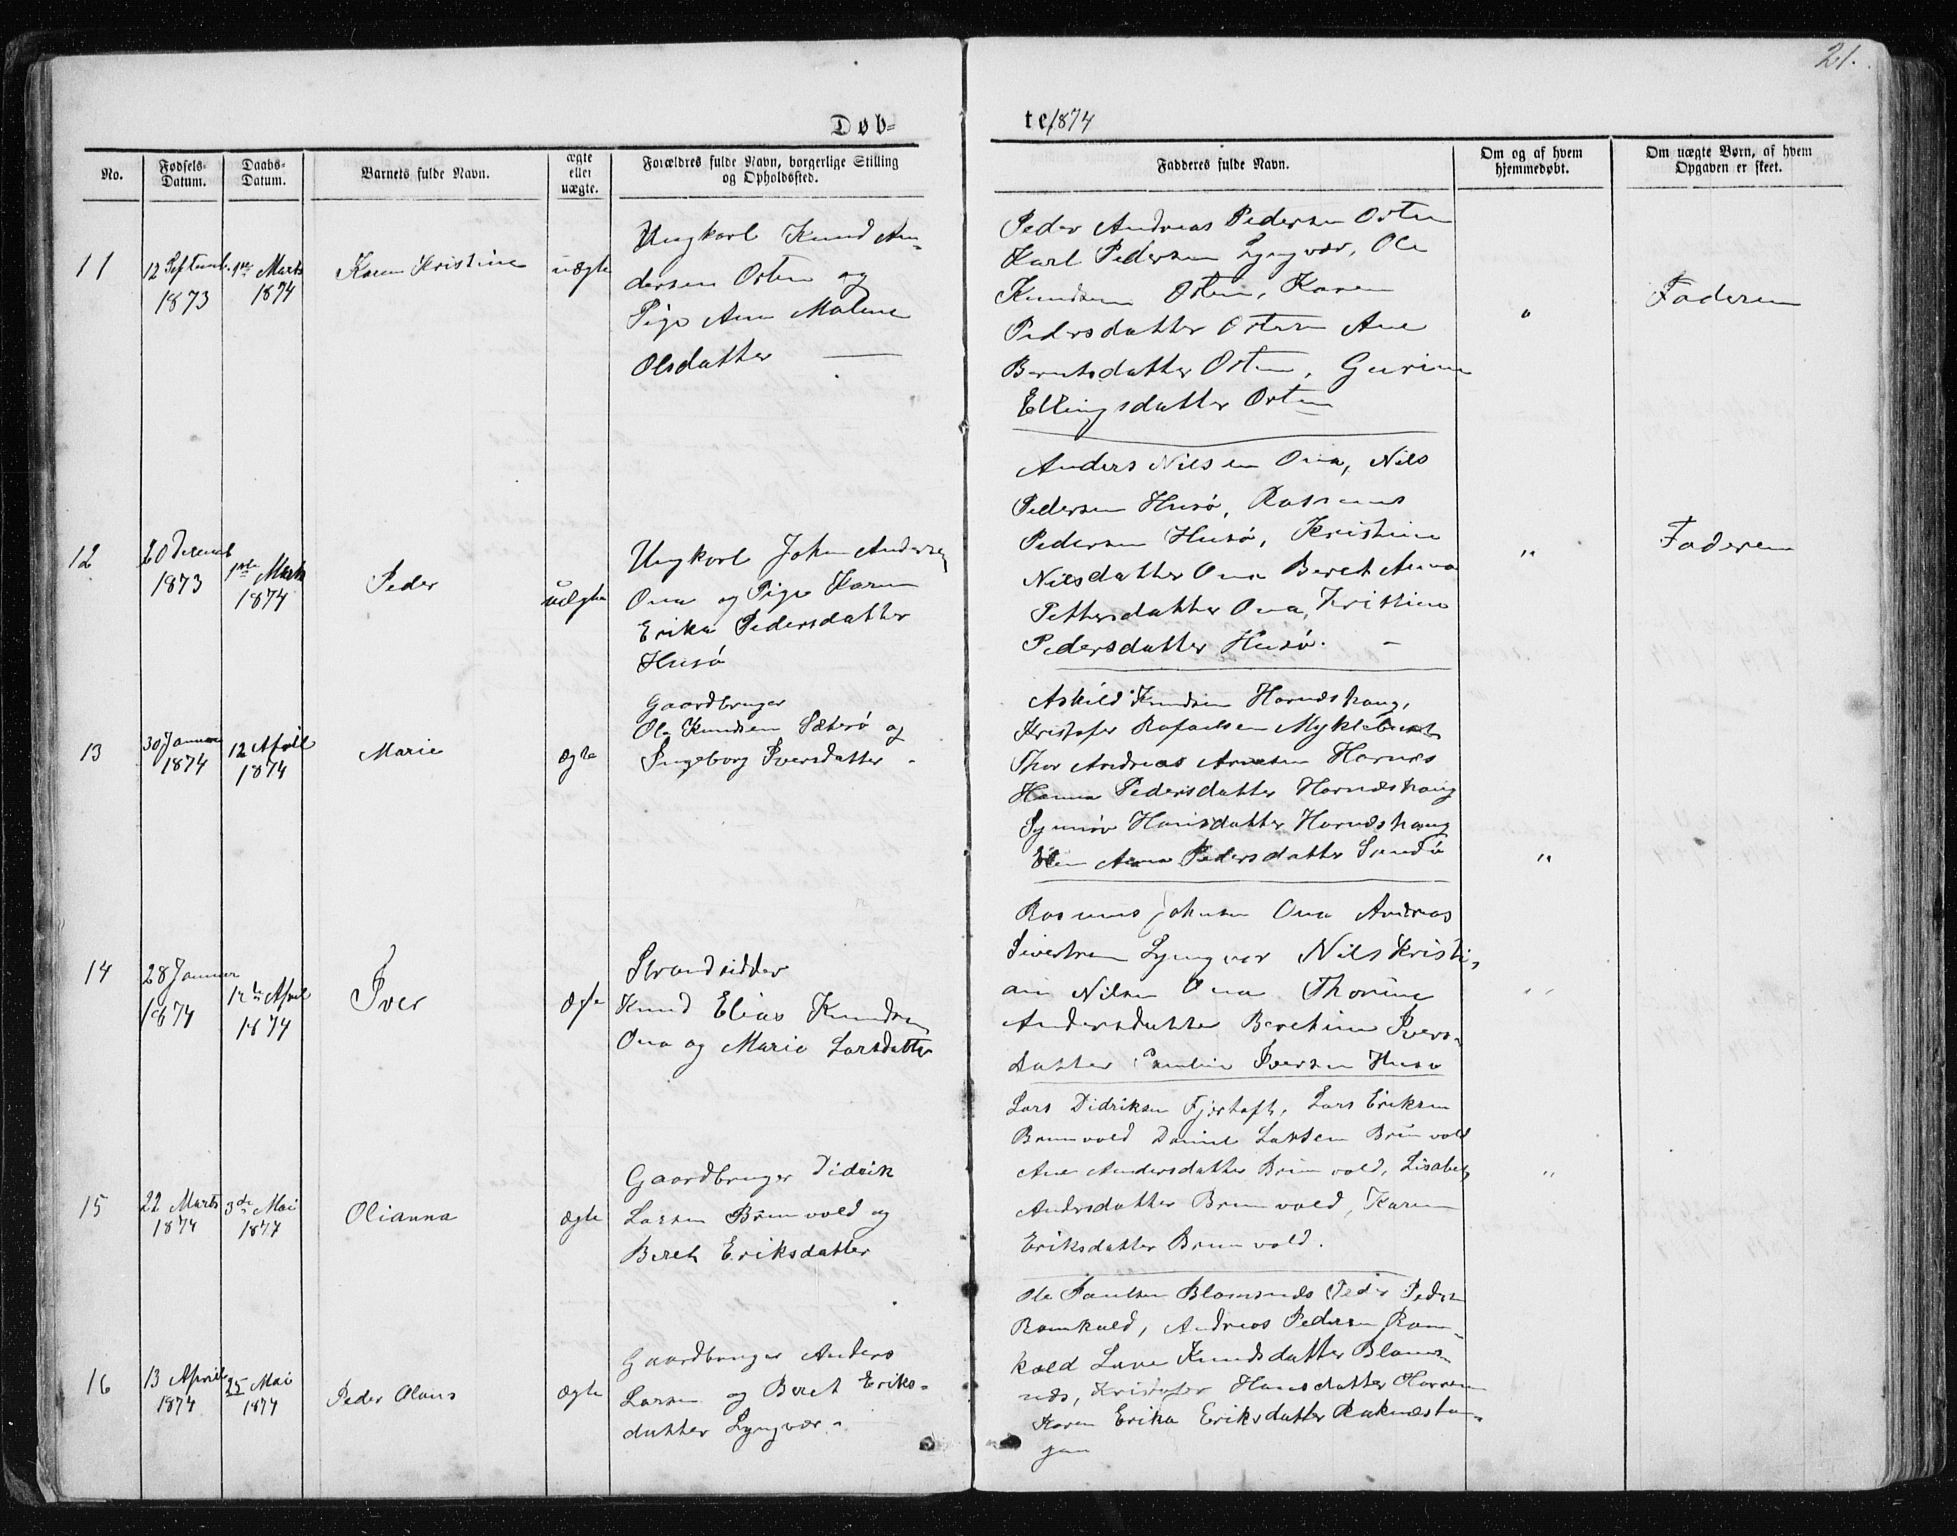 21.
Døb- te 1874
No.
Fødsels-
Datum.
Daabs-
Datum.
Barnets fulde Navn.
ægte
eller
uægte.
Forældres fulde Navn, borgerlige Stilling
og Opholdssted.
Fadderes fulde Navn.
Om og af hvem
hjemmedøbt.
Om uægte Børn, af hvem
Opgaven er skeet.
11
12 Septemb.
1873
1ste Marts
1874
Karen Kristine
uægte
Ungkarl Knud An-
dersen Orten og
Pige Ane Malene
Olsdatter —
Peder Andreas Pedersen Orten
Karl Pedersen Lyngvær, Ole
Knudsen Orten, Karen
Pedersdatter Orten Ane
Berntsdatter Orten, Gurine
Ellingsdatter Orten
"
Faderen
12
20 Decemb
1873
1ste Marts
1874
Peder
uægte
Ungkarl John Andersen
Ona og Pige Karen
Erika Pedersdatter
Husø
Anders Nilsen Ona, Nils
Pedersen Husø, Rasmus
Pedersen Husø, Kristine
Nilsdatter Ona Beret Anna
Pettersdatter Ona, Kristine
Pedersdatter Husø. —
"
Faderen
13
30 Januar
1874
12 April
1874
Marie
ægte
Gaardbruger
Ole Knudsen Sæterø og
Ingeborg Iversdatter .
Askild Knudsen Harnæshaug,
Kristofer Rafaelsen Myklebust
Thor Andreas Arnesen Harnæs
Hanna Pedersdatter Harnæshaug
Synnøv Hansdatter Harnæshaug
Elen Anna Pedersdatter Sandø
"
14
28 Januar
1874
12te April
1874
Iver
ægte
Strandsidder
Knud Elias Knudsen
Ona og Marie Larsdatter
Rasmus Johnsen Ona Andreas
Sivertsen Lyngvær Nils Kristi-
an Nilsen Ona Thorine
Andersdatter Beretine Ivers-
datter Pauline Iversen Husø
"
15
22 Marts
1874
3de Mai
1874
Olianna
ægte
Gaardbruger Didrik
Larsen Brunvold og
Beret Eriksdatter
Lars Didriksen Fjørtoft, Lars Eriksen
Brunvold Daniel Larsen Brunvold
Ane Andersdatter Brunvold, Lisabet
Andersdatter Brunvold, Karen
Eriksdatter Brunvold.
"
16
13 April
1874
25 Mai
1874
Peder Olaus
ægte
Gaardbruger Anders
Larsen og Beret Eriks-
datter Lyngvær.
Ole Paulsen Blomsnæs Peder Pedersen
Ramkold, Andreas Pedersen Ram-
kold Lave Knudsdatter Bloms-
næs, Hansdatter
Karen Erika Eriksdatter Raknæstan-
gen